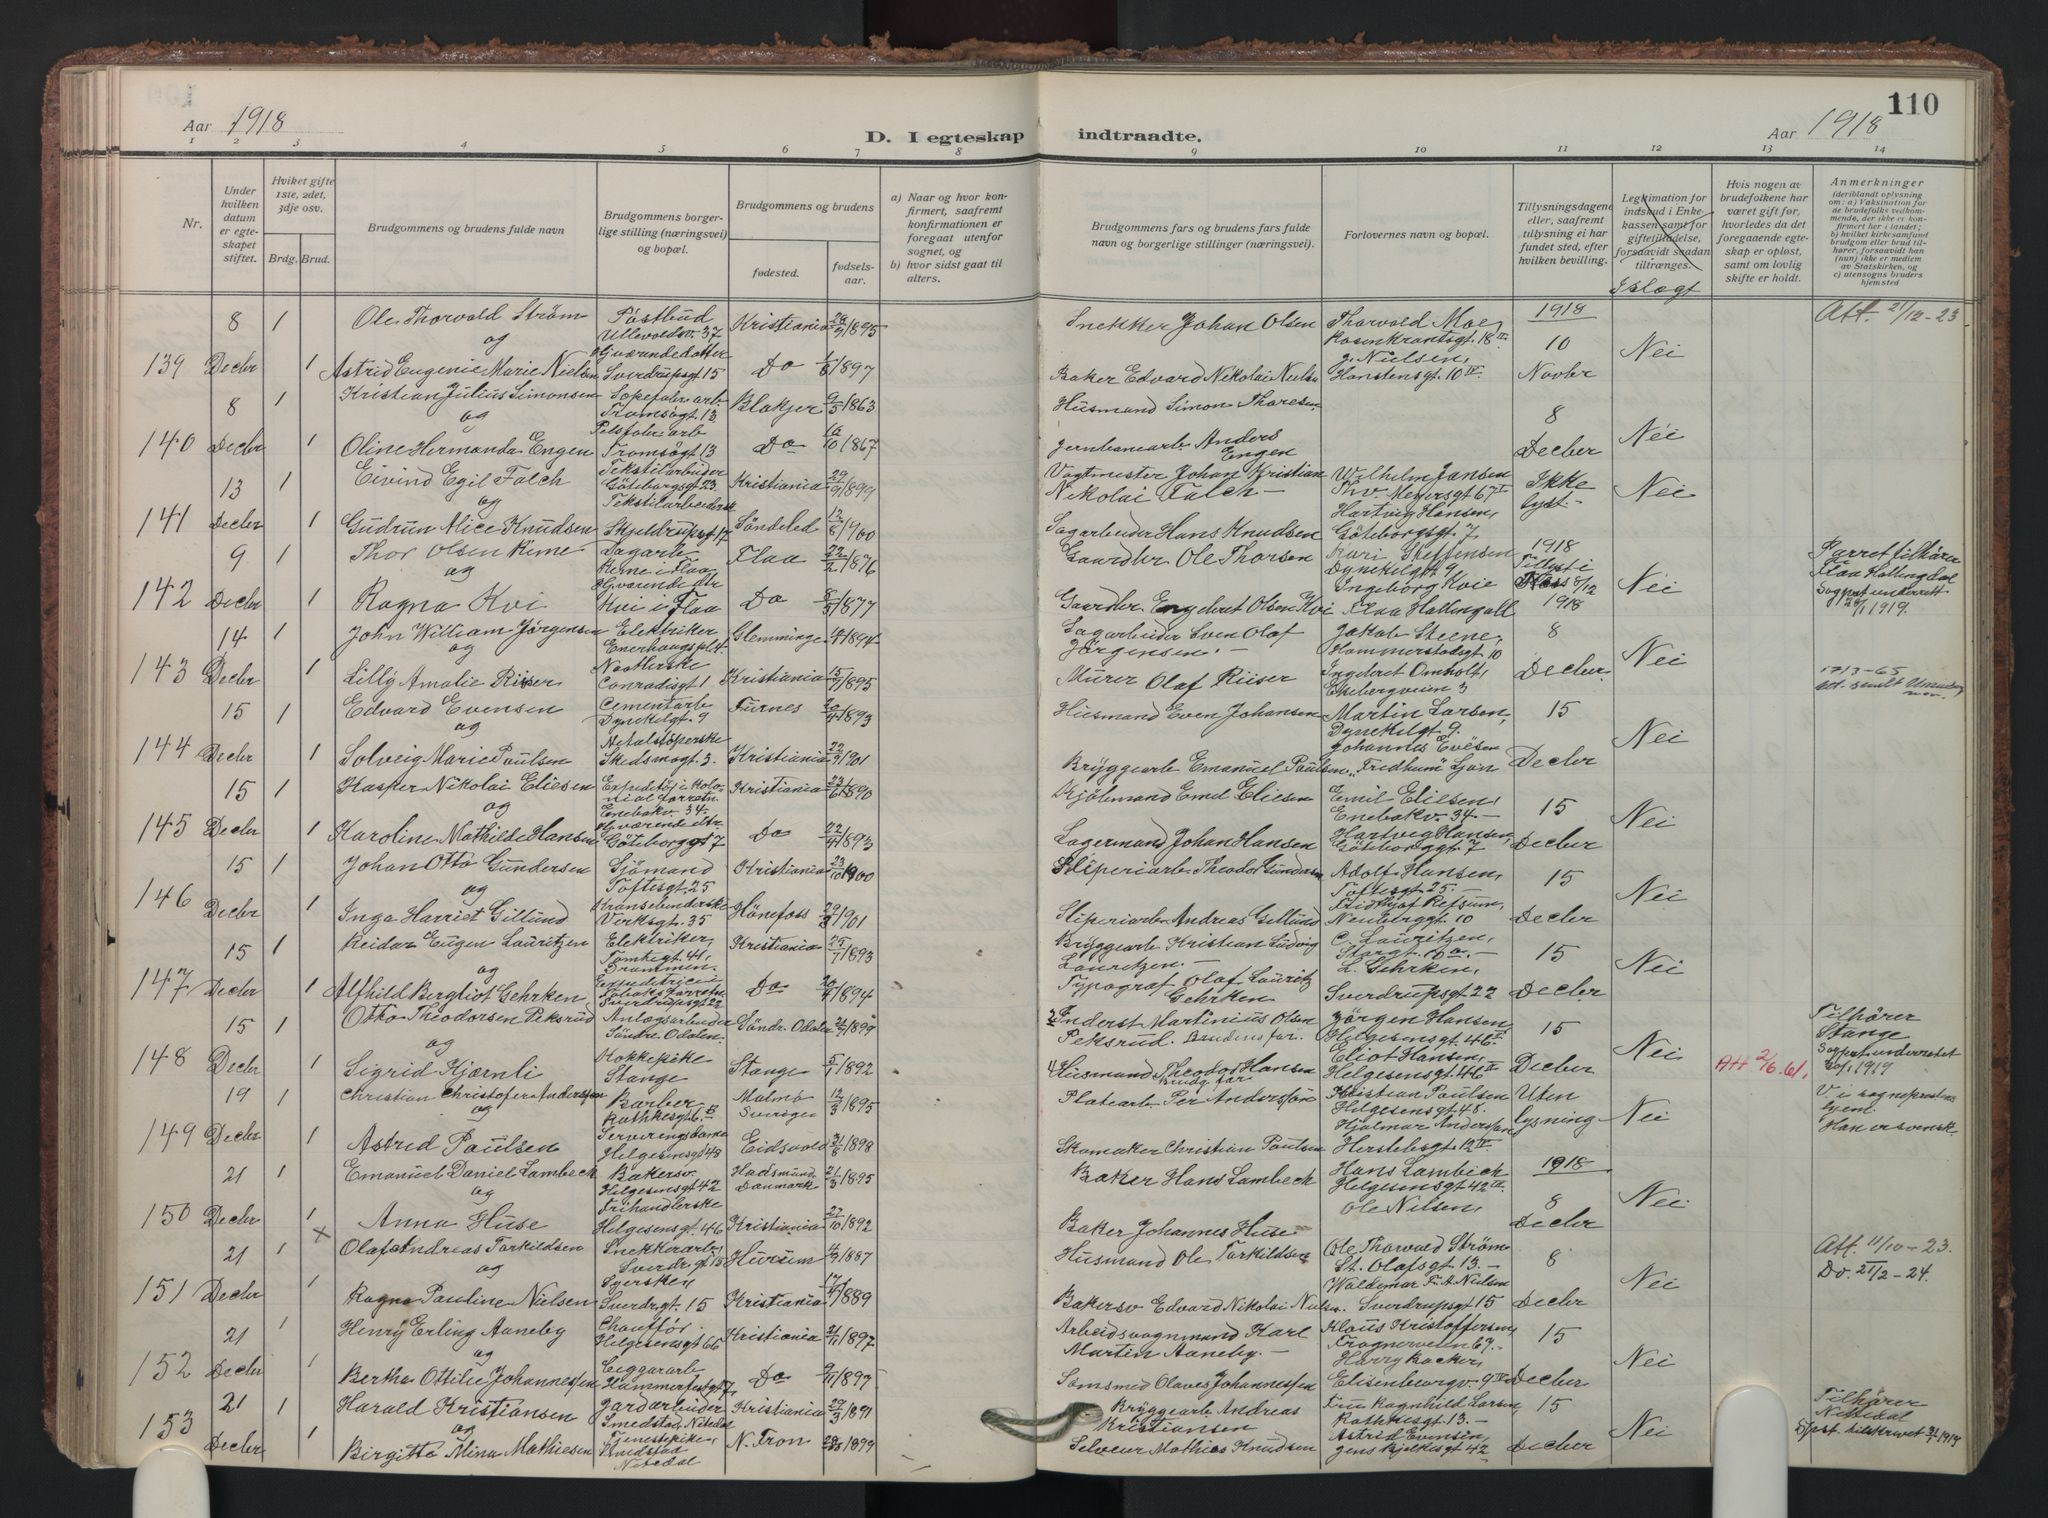 110
Aar 1918
D. I egteskap indtraadte.
Aar 1918
1 2 3 4 5 6 7 8 9 10 11 12 13 14
Nr.
Under hvilken datum er egteskapet stiftet.
Hviket gifte 1ste, 2det, 3dje osv.
Brdg. Brud.
Brudgommens og brudens fulde navn
Brudgommens borgerlige stilling (næringsvei) og bopæl.
Brudgommens og brudens
fødested.
fødselsaar.
a) Naar og hvor konfirmert, saafremt konfirmationen er foregaat utenfor sognet, og
b) hvor sidst gaat til alters.
Brudgommens fars og brudens fars fulde navn og borgerlige stillinger (næringsvei).
Forlovernes navn og bopæl.
Tillysningsdagene eller, saafremt tillysning ei har fundet sted, efter hvilken bevilling.
Legitimation for indskud i Enkekassen samt for giftetilladelse, forsaavidt saadan tiltrænges.
I slegt
Hvis nogen av brudefolkene har været gift før, hvorledes da det foregaaende egteskap er opløst, samt om lovlig skifte er holdt.
Anmerkninger
(deriblandt oplysning om: a) Vaksination for de brudefolks vedkommende, der ikke er konfirmert her i landet; b) hvilket kirkesamfund brudgom eller brud tilhører, forsaavidt han (hun) ikke er medlem av Statskirken, og c) utensogns bruders hjemsted
139 8 Decbr 1 1
Ole Thorvald Strøm
og
Astrid Eugenie Marie Nielsen
Postbud
Ullevoldsv. 37
Hj.værende datter
Sverdrupsgt 15
Kristiania 1895
Do 1897
Snekker Johan Olsen
Baker Edvard Nikolai Nielsen
Thorvald Moe,
Rosenkrantsgt. 18 II
J. Nielsen,
Hanstensgt. 10 IV
1918
10
Novbr
Nei
Att. 21/12-23
140 8 Decbr 1 1
Kristian Julius Simonsen
og
Oline Hermanda Engen
Tromsøgt. 13
Tromsøgt 13
Blakjer 9/5 1863
Do 1867
Husmand Simon Thoresen
Jernbanearb. Anders Engen
8
Decber
Nei
141 13 Decbr 1 1
Eivind Egil Falch
og
Gudrun Alice Knudsen
Tekstilarbeider
Göteborgsgt 23
Tekstilarbeiderske
Skjeldrupsgt 17
Kristiania 29/9 1899
Söndeled 12/8 1900
Vogtmester Johan Kristian
Nikolai Falch
Sagarbeider Hans Knudsen
Wilhelm Jansen
Thv. Meyersgt 67 II
Hartvig Hansen,
Göteborgsgt. 7
Ikke
lyst
Nei
142 9 Decbr 1 1
Thor Olsen Rime
og
Ragna Kvi
Sagarb.
Rime i Flaa
Hj.værende dtr
Kvi i Flaa
Flaa 22/2 1876
Do 1877
Gaardbr Ole Thorsen
Gaardbr. Engebret Olsen Kvi
Kari Steffensen
Dynekilgt 9
Ingeborg Kvie
Flaa Hallingdall
1918
Tillyst i
8/12
1918
Nei
Parret tilhører
Flaa Hallingdal
Sognpr. underrett
1919.
143 14 Decbr 1 1
John William Jørgensen
og
Lilly Amalie Riiser
Elektriker
Enerhaugspl. 4
Conradisgt 1
Glemminge 1894
Kristiania 1895
Sagarbeider Sven Olaf
Jørgensen.
Murer Olaf Riiser
Jakob Steene,
Hammerstadsgt 10
Ingebret Omholt,
Ekebergveien 3
8
Decber.
Nei
17/3-65
144 15 Decbr 1 1
Edvard Evensen
og
Solveig Marie Paulsen
Cementarb
Dynekilgt. 9
Metalstøperske
Skedsmogt. 3.
Furnes 1893
Kristiania 1901
Husmand Even Johansen
Bryggearb Emanuel Paulsen
Martin Larsen,
Dynekilgt 9.
Johannes
"Fredhum" Ljan
15
Decber
Nei
145 15 Decbr 1 1
Kasper Nikolai Eliesen
og
Karoline Mathilde Hansen
Enebakv. 34.
Hj.værende dtr
Göteborggt 7
Kristiania 23/6 1890
Do 1893
Kjöbmand Emil Eliesen
Lagermand Johan Hansen
Emil Eliesen,
Enebakv. 34.
Hartvig Hansen,
Göteborggt. 7
15
Decber
Nei
146 15 Decbr 1 1
Johan Otto Gundersen
og
Inga Harriet Gillund
Sjömand
Toftesgt. 25
Kransebinderske
Verksgt. 35
Kristiania 23/10 1900
Hönefoss 1901
Sliperiarb. Theodor Gundersen
Sliperiarb Andreas Gillund
Adolf Hansen,
Toftesgt 25.
Fridtjof Refsum,
Neuberggt. 10
15
Decber
Nei
147 15 Decbr 1 1
Reidar Eugen Lauritzen
og
Alfhild Bergliot Gehrken
Elektriker,
Drammen.
Sverdrupsgt 22
Kristiania 25/7 1893
Do 1894
Bryggearb Kristian Ludvig
Lauritzen.
Typograf Olaf Lauritz
Gehrken
C. Lauritzen,
Storgt. 10 a.
L. Gehrken,
Sverdrupsgt 22
15
Decber
Nei
148 15 Decbr 1 1
Otto Theodorsen Peksrud
og
Sigrid Kjærnli
Anlægsarbeider
Söndre Odalen.
Kokkepike
Stange
Söndr. Odalen
Stange 5/1 1892
Inderst Martinius Olsen
Peksrud. Brudens far.
Husmand Theodor Hansen
Brudg far
Jørgen Hansen,
Helgesensgt. 46 II
Eliot Hansen,
Helgesensgt 46 II
15
Decber
Nei
Att 2/6.61.
Tilhører
Stange
Sognpr. underrettet
1919
149 19 Decbr 1 1
Christian Christofer Anderssön
og
Astrid Paulsen
Barber
Rathkesgt 6. B
Helgesensgt 48
Malmö Sverige 12/3 1895
Eidsvold 1898
Platearb. Per Anderssön
Skomaker Christian Paulsen
Kristian Paulsen
Helgesensgt 48.
Hjalmar Anderssön
Herslebsgt. 12 IV
Uten
lysning
Nei
V i sogneprestens
hjem.
Han er svensk.
150 21 Decbr 1 1
Emanuel Daniel Lambech
og
Anna Huse
Bakersv.
Helgesensgt 42
Helgesensgt. 46
Hadsmund Danmark 21/3 1895
Kristiania 27/10 1892
Baker Hans Lambech
Baker Johannes Huse
Hans Lambech
Helgesensgt 42 IV
Ole Nilsen,
1918
8
Decber
Nei
151 21 Decbr 1 1
Olaf Andreas Torkildsen
og
Ragna Pauline Nielsen
Snekkerarb.
Sverdr.gt 15
Syerske,
Sverdrgt. 15
Hurum 1887
Kristiania 1889
Husmand Ole Torkildsen
Bakersv Edvard Nikolai Nielsen.
Ole Thorvald Strøm
St. Olafsgt 13.
Waldemar Fr. A. Nielsen
Sverdrupsgt 15
8
Decber
Nei
Att. 11/10-23.
Do. 21/2-24.
152 21 Decbr 1 1
Henry Erling Aaneby
og
Bertha Ottilie Johannessen
Chauffør
Helgesensgt 66
Ciggararb
Hammerfestgt 7
Kristiania 21/11 1897
Do 9/11 1897
Arbeidsvognmand Karl
Martin Aaneby.
Olaves Johannessen
Klaus Kristoffersen
Frognerveien 67.
Harry Backer,
Elisenbergv. 9 IV
15
Decber
Nei
153 21 Decbr 1 1
Harald Kristiansen
og
Birgitte Mina Mathiesen
Gardarbeider
Smedstad, Nitedal
Tjenestepike,
Nitedal
Kristiania 29/3 1891
N. Fron 1899
Bryggearb. Andreas
Kristiansen
Mathias Knudsen
Fru Ragnhild Larsen,
Rathkesgt 13.
Astrid Evensen,
Jens Bjelkesgt 42
15
Decber
Nei
Tilhører
Nittedal
Spr. tilskrevet 1919